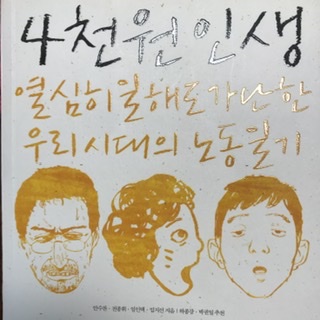 4천원 인생
열심히 일해도 가난한
우리 시대의 노동일기
안수찬 · 전종휘 · 임인택 · 임지선 지음 | 하종강 · 박권일 추천